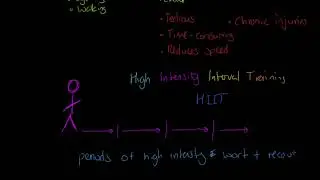 • Walking
• Tedious
• Chronic injuries
• Time-consuming
• Reduces speed
High Intensity Interval Training
HIIT
periods of high intensity work +